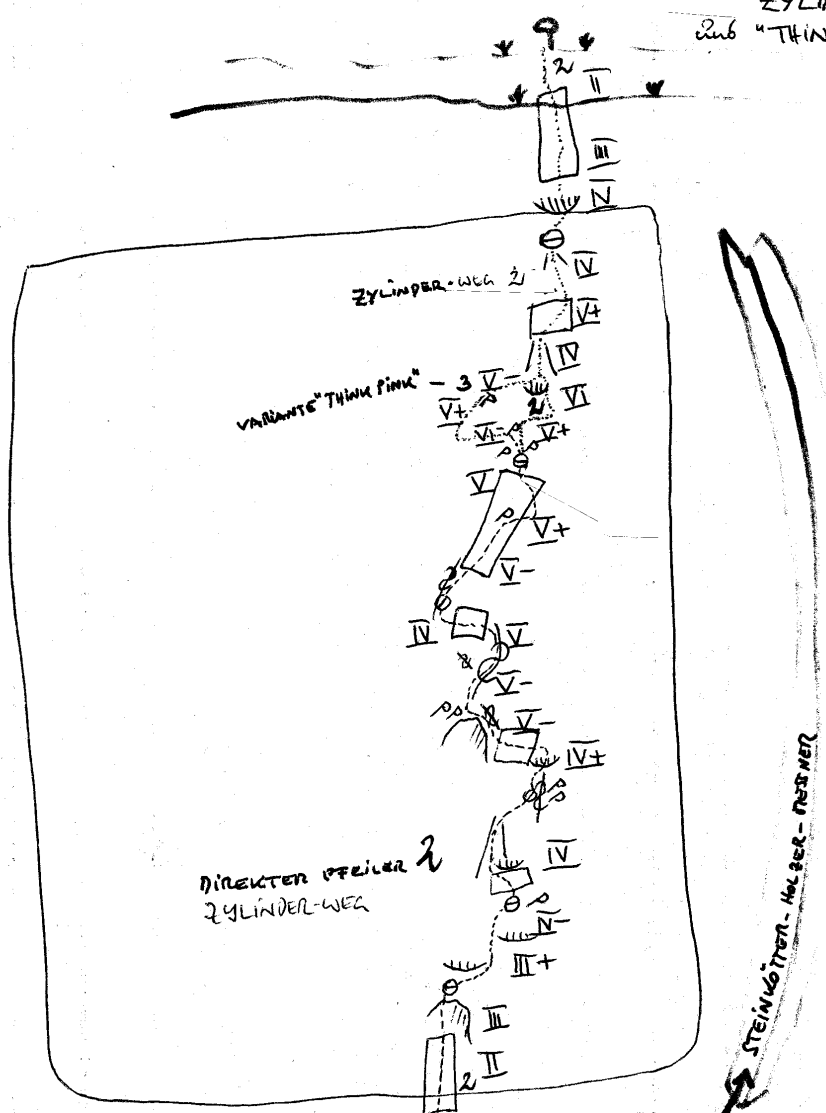 und "THIN
2
II
III
IV
IV
ZYLINDER-WEG 2
V+
IV
VARIANTE "THINK PINK" - 3 V-
VI
V+
2
VI-
V+
V
V+
V-
IV
V
V-
V-
IV+
IV
DIREKTER PFEILER 2
ZYLINDER-WEG
IV-
III+
III
II
2
STEINKÖTTER-HOLZER-MESSNER